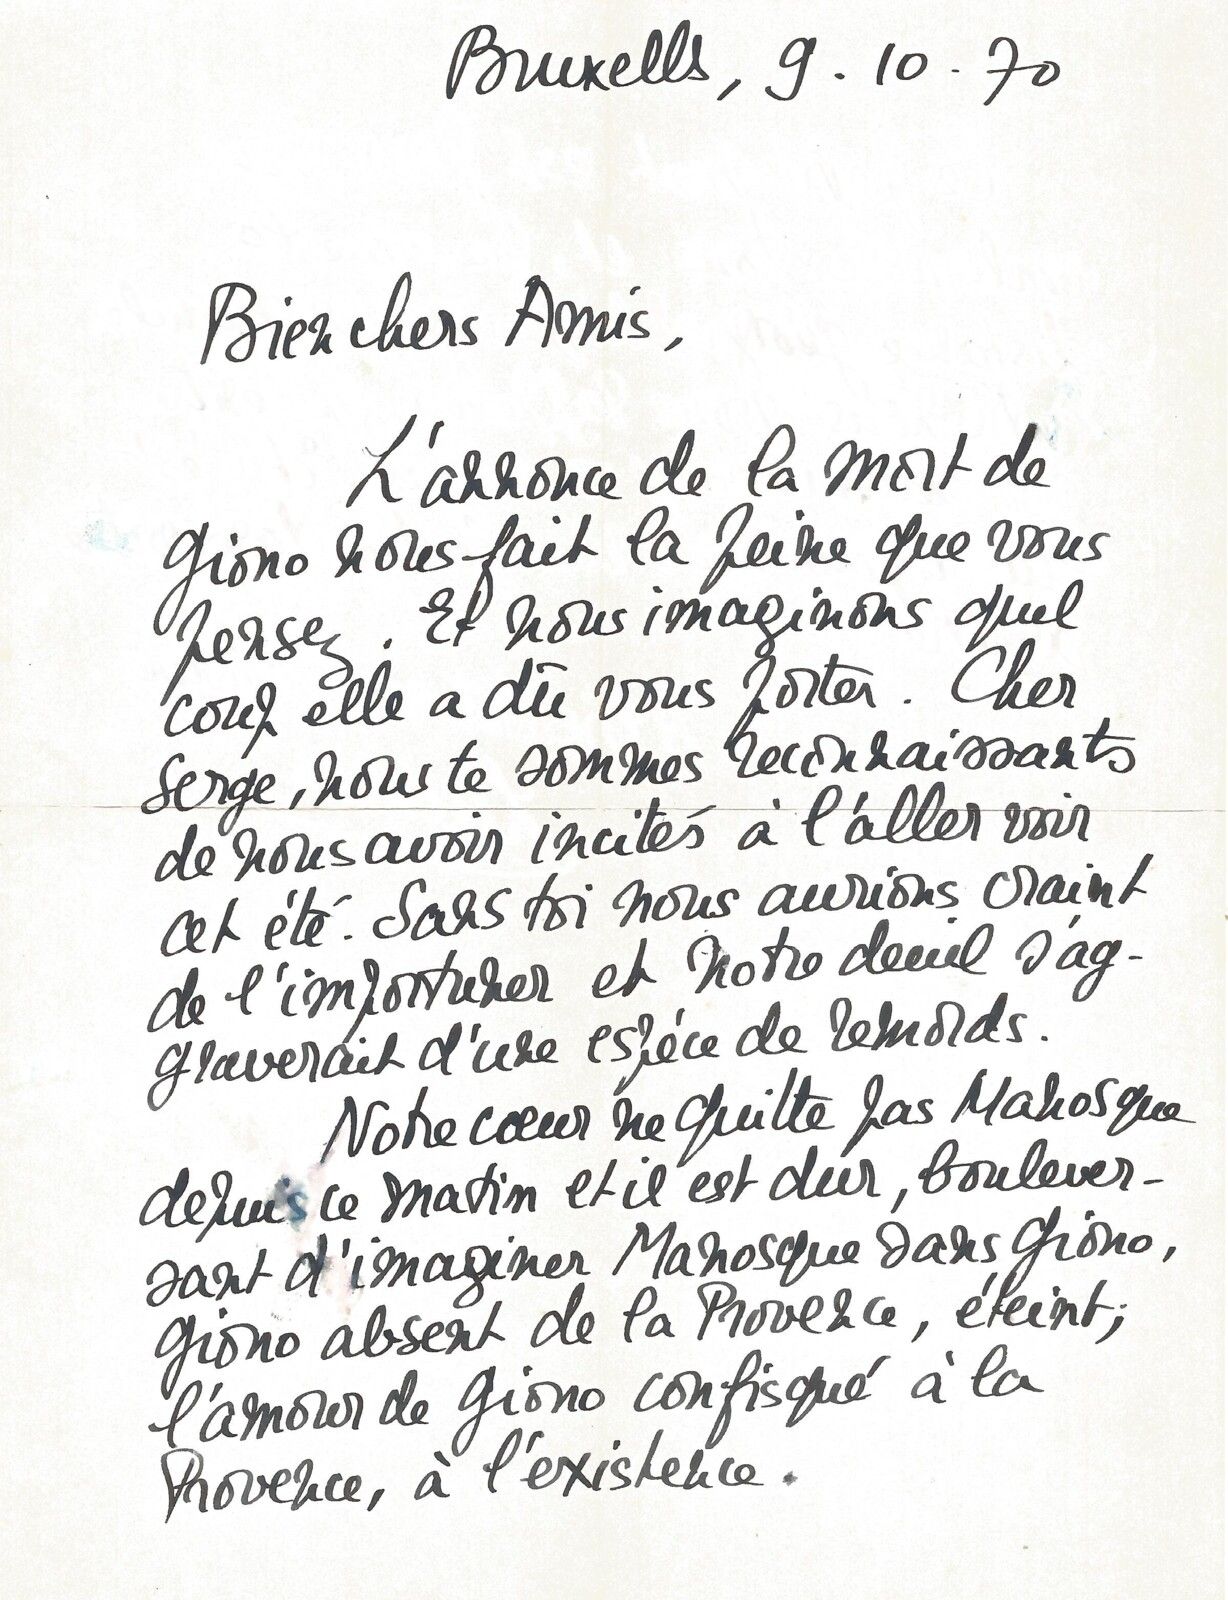 Bruxelles, 9.10.70
Bien chers Amis,
L'annonce de la mort de
Giono nous fait la peine que vous
pensez. Et nous imaginons quel
coup elle a dû vous porter. Cher
Serge, nous te sommes reconnaissants
de nous avoir incités à l'aller voir
cet été. Sans toi nous aurions craint
de l'importuner et notre deuil s'ag-
graverait d'une espèce de remords.
Notre cœur ne quitte pas Manosque
depuis ce matin et il est dur, boulever-
sant d'imaginer Manosque sans Giono,
Giono absent de la Provence, éteint;
l'amour de Giono confisqué à la
Provence, à l'existence.